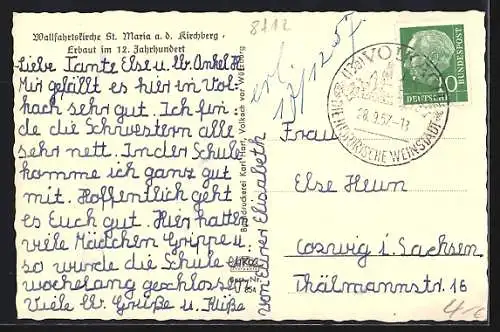 Wallfahrtskirche St. Maria a. d. Kirchberg
Erbaut im 12. Jahrhundert
Liebe Tante Else u. lbr. Onkel K.
Mir gefällt es hier in Vol-
kach sehr gut. Ich fin-
de die Schwestern alle
sehr nett. In der Schule
komme ich ganz gut
mit. Hoffentlich geht
es Euch gut. Hier hatten
viele Mädchen Grippe u.
so wurde die Schule eine
wochelang geschlossen.
Viele lb. Grüße u. Küße
von Eurer Elisabeth
Buchdruckerei Karl Hart, Volkach vor Würzburg
8112
erl.
13/12 57
VOLKACH
28.9.57-13
HISTORISCHE WEINSTADT
DEUTSCHE BUNDESPOST
10
Frau
Else Heun
Coswig i. Sachsen
Thälmannstr. 16